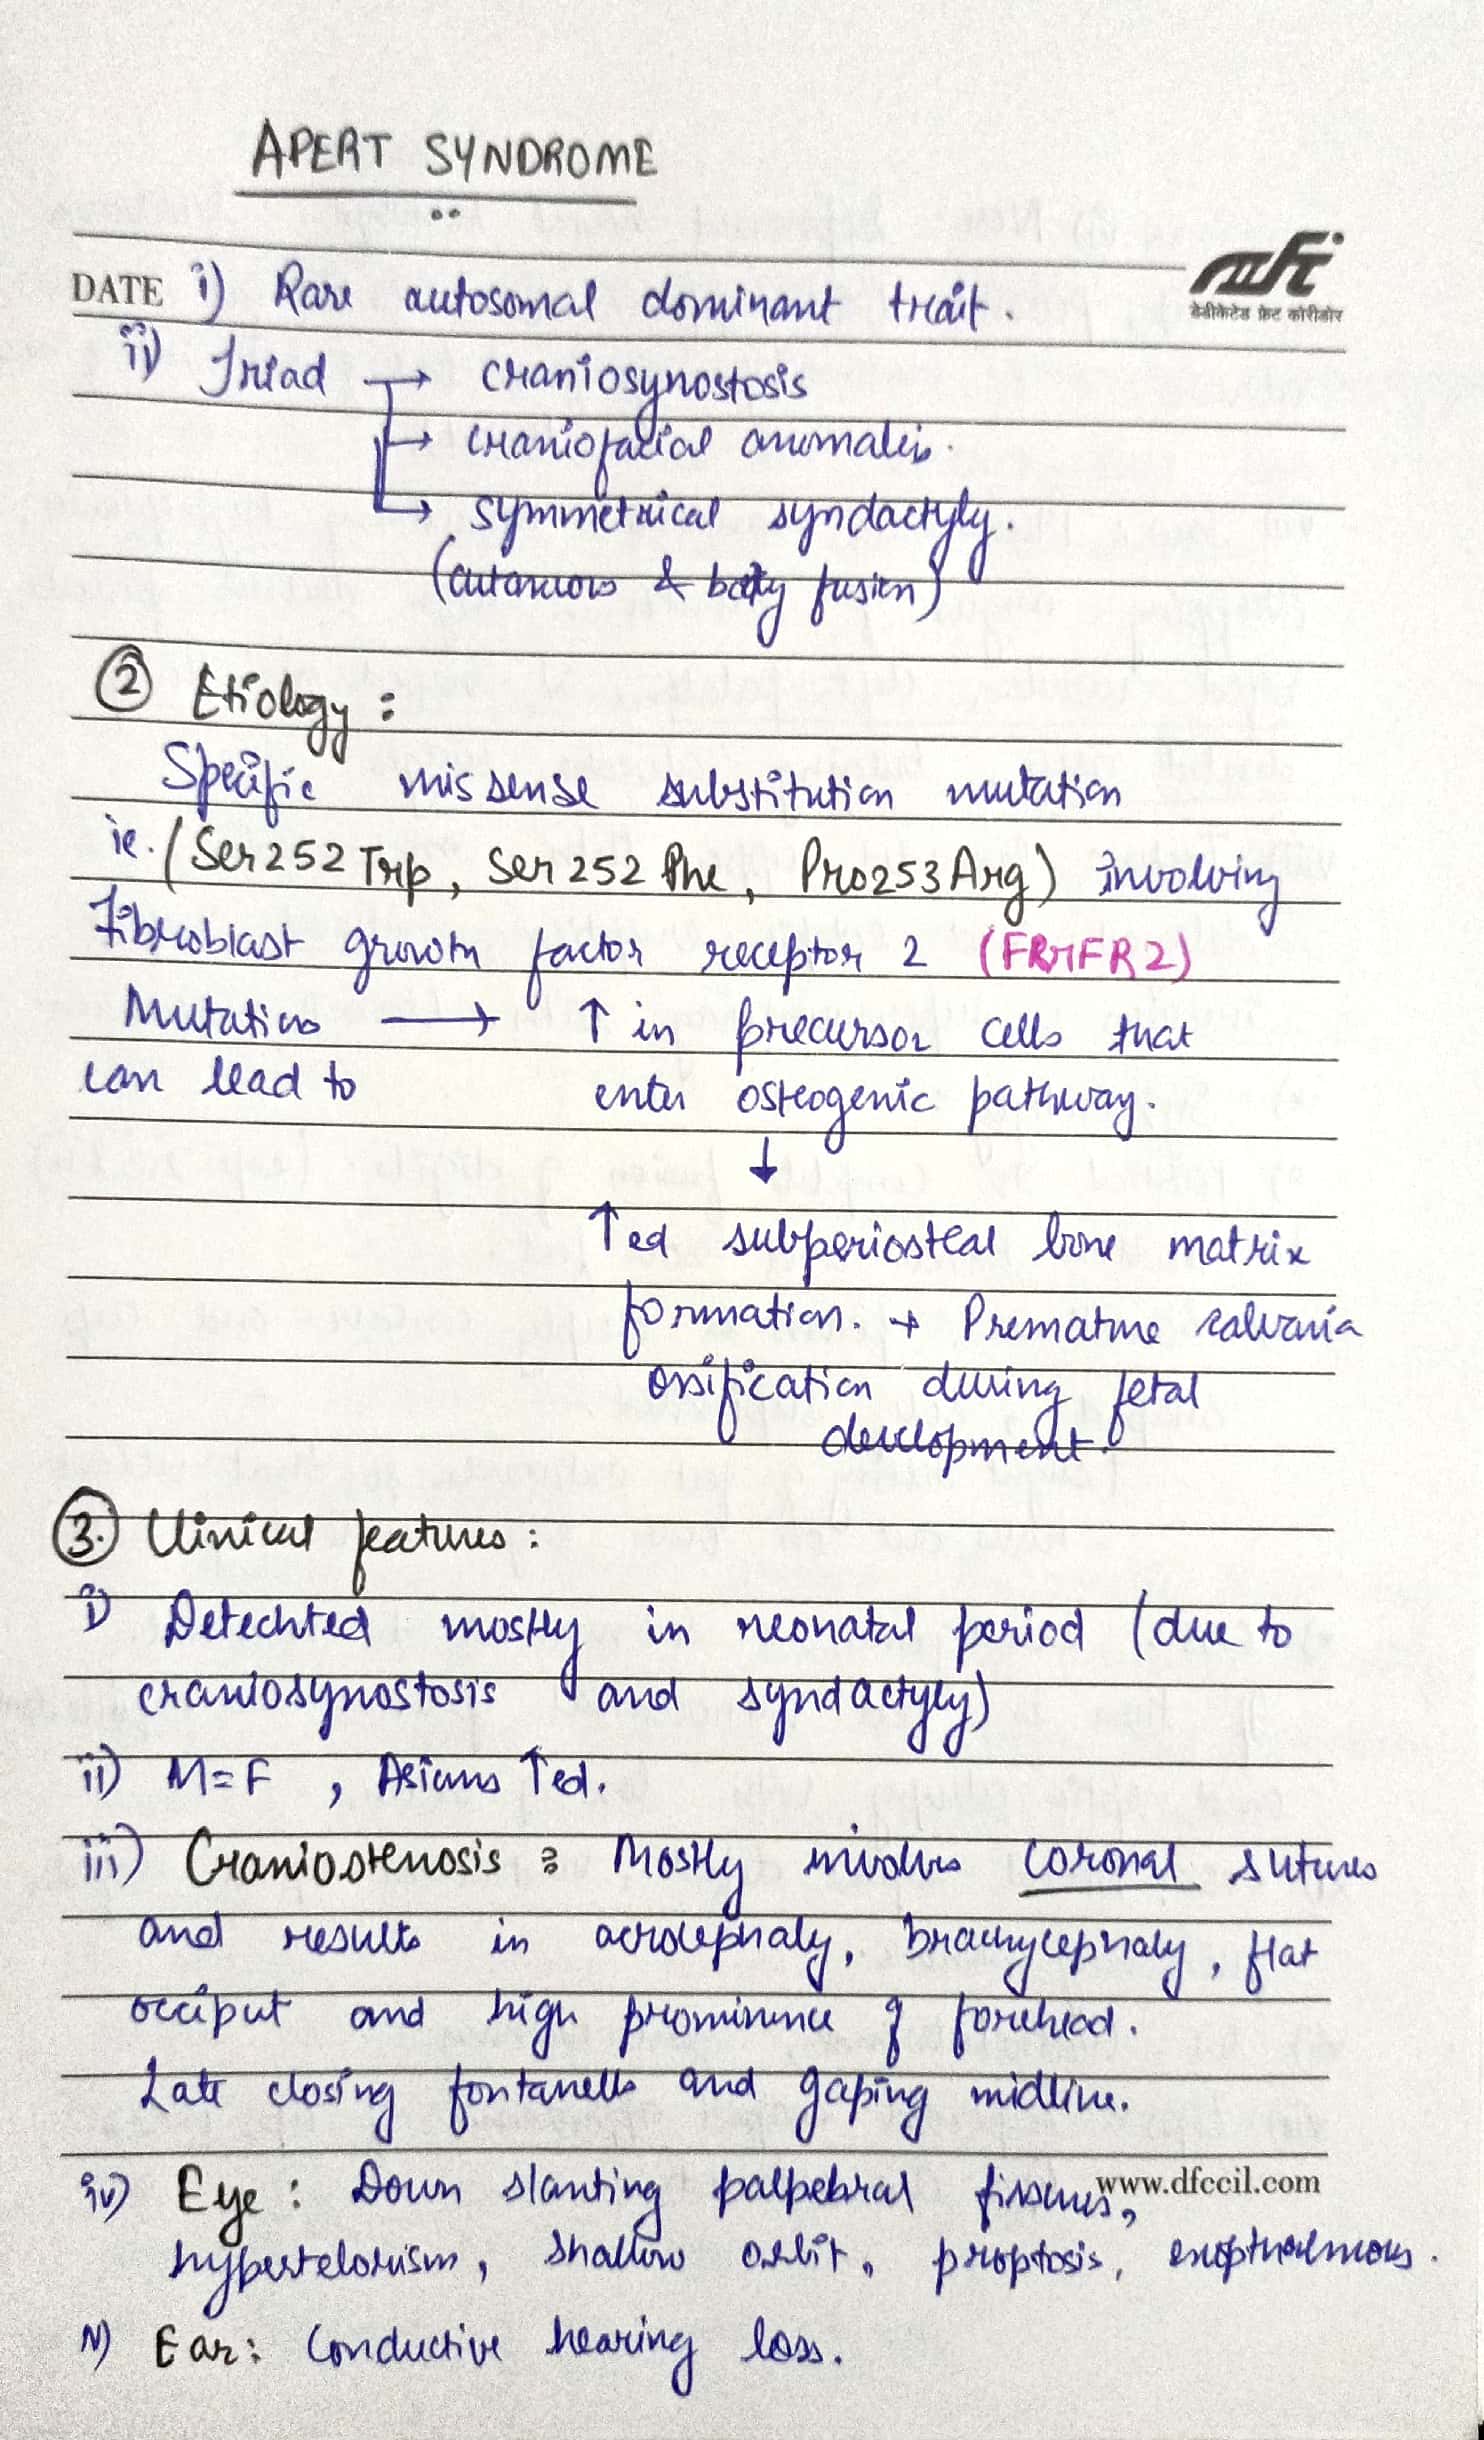 APERT SYNDROME
dfc
डेडीकेटेड फ्रेट कोरीडोर
DATE i) Rare autosomal dominant trait.
ii) Triad → craniosynostosis
→ craniofacial anomalies.
→ symmetrical syndactyly.
(cutaneous & bony fusion)
② Etiology :
Specific missense substitution mutation
ie. (Ser252Trp, Ser252Phe, Pro253Arg) involving
Fibroblast growth factor receptor 2 (FRGFR2)
Mutations → ↑ in precursor cells that
can lead to enter osteogenic pathway.
↓
↑ed subperiosteal bone matrix
formation. + Premature calvaria
ossification during fetal
development.
③. Clinical features :
i) Detechted mostly in neonatal period (due to
craniosynostosis and syndactyly)
ii) M=F , Asians ↑ed.
iii) Craniostenosis : Mostly involves coronal sutures
and results in acrocephaly, brachycephaly, flat
occiput and high prominence of forehead.
Late closing fontanells and gaping midline.
iv) Eye : Down slanting palpebral fissures,
www.dfccil.com
hypertelorism, shallow orbit, proptosis, exopthalmous.
v) Ear: Conductive hearing loss.